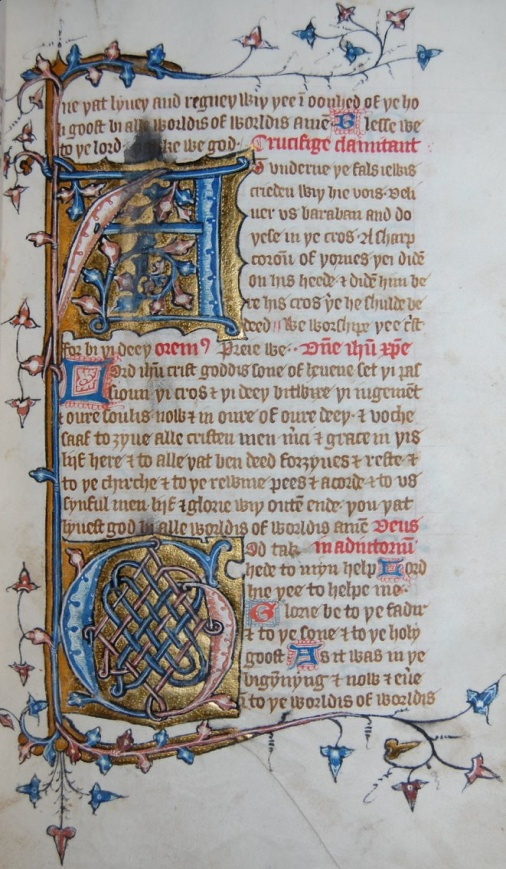 ne yat lyuey and regney wiy yee ī oonhed of ye ho
li goost bi alle worldis of worldis amē Blesse we
to ye lord ke we god Crucifige clamitant
A vnderne ye fals iewis
crieden wiy hie vois Deli
uer vs baraban and do
yese in ye cros A sharp
coroū of yornes yei didē
on his heede ⁊ didē him be
re his cros ye he shulde be
deed we worshipe yee cist
for bi yi deey oremꝰ Preie we Dn̄e ihū xp̄e
Lord ihū crist goddis sone of heuene set yi pas
sioun yi cros ⁊ yi deey bitwixe yi iugemēt
⁊ oure soulis now ⁊ in oure of oure deey ⁊ voche
saaf to ȝyue alle cristen men mci ⁊ grace in yis
lijf here ⁊ to alle yat ben deed forȝyues ⁊ reste ⁊
to ye chirche ⁊ to ye rewme pees ⁊ acorde ⁊ to vs
synful men lijf ⁊ glorie wiy outē ende you yat
lyuest god bi alle worldis of worldis amē Deus
God tak in adiutoriū
hede to myn help Lord
hie yee to helpe me
Glorie be to ye fadir
⁊ to ye sone ⁊ to ye holy
goost As it was in ye
bigȳnyng ⁊ now ⁊ eue
⁊ to ye worldis of worldis